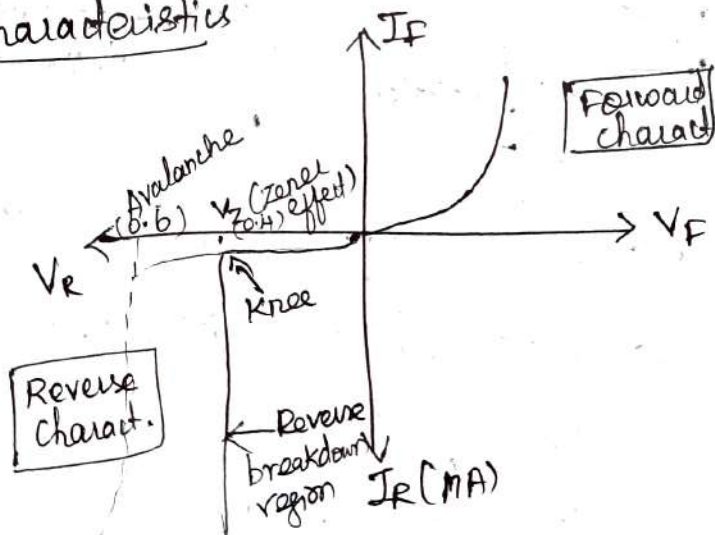 haracteristics
I_F
Forward
charact
Avalanche
(0.6)
V_Z (Zener
effect)
(0.4)
V_F
V_R
Knee
Reverse
Charact.
Reverse
breakdown
region
I_R (MA)